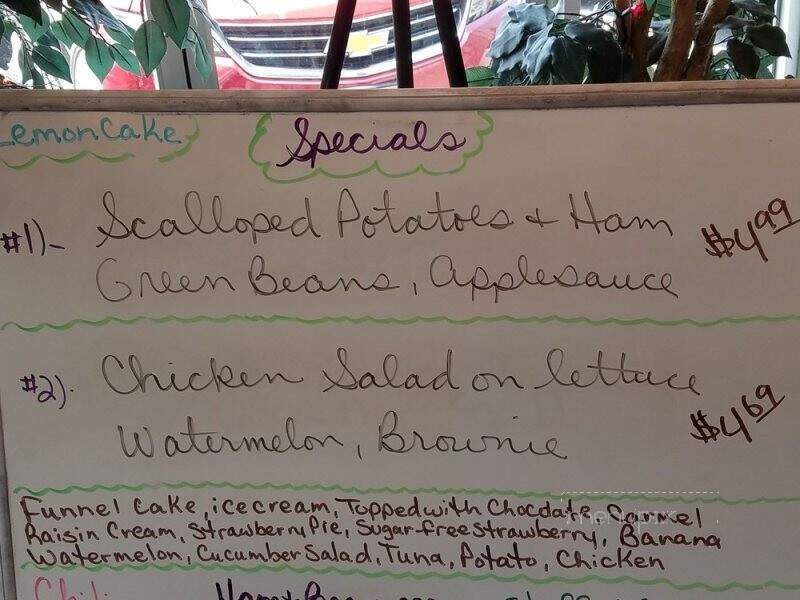 Lemon Cake
Specials
#1)- Scalloped Potatoes & Ham $4.99
Green Beans, Applesauce
#2). Chicken Salad on lettuce
Watermelon, Brownie $4.69
Funnel Cake, ice cream, Topped with Chocdate, Carmel
Raisin Cream, Strawberry Pie, Sugar-free Strawberry, Banana
Watermelon, Cucumber Salad, Tuna, Potato, Chicken